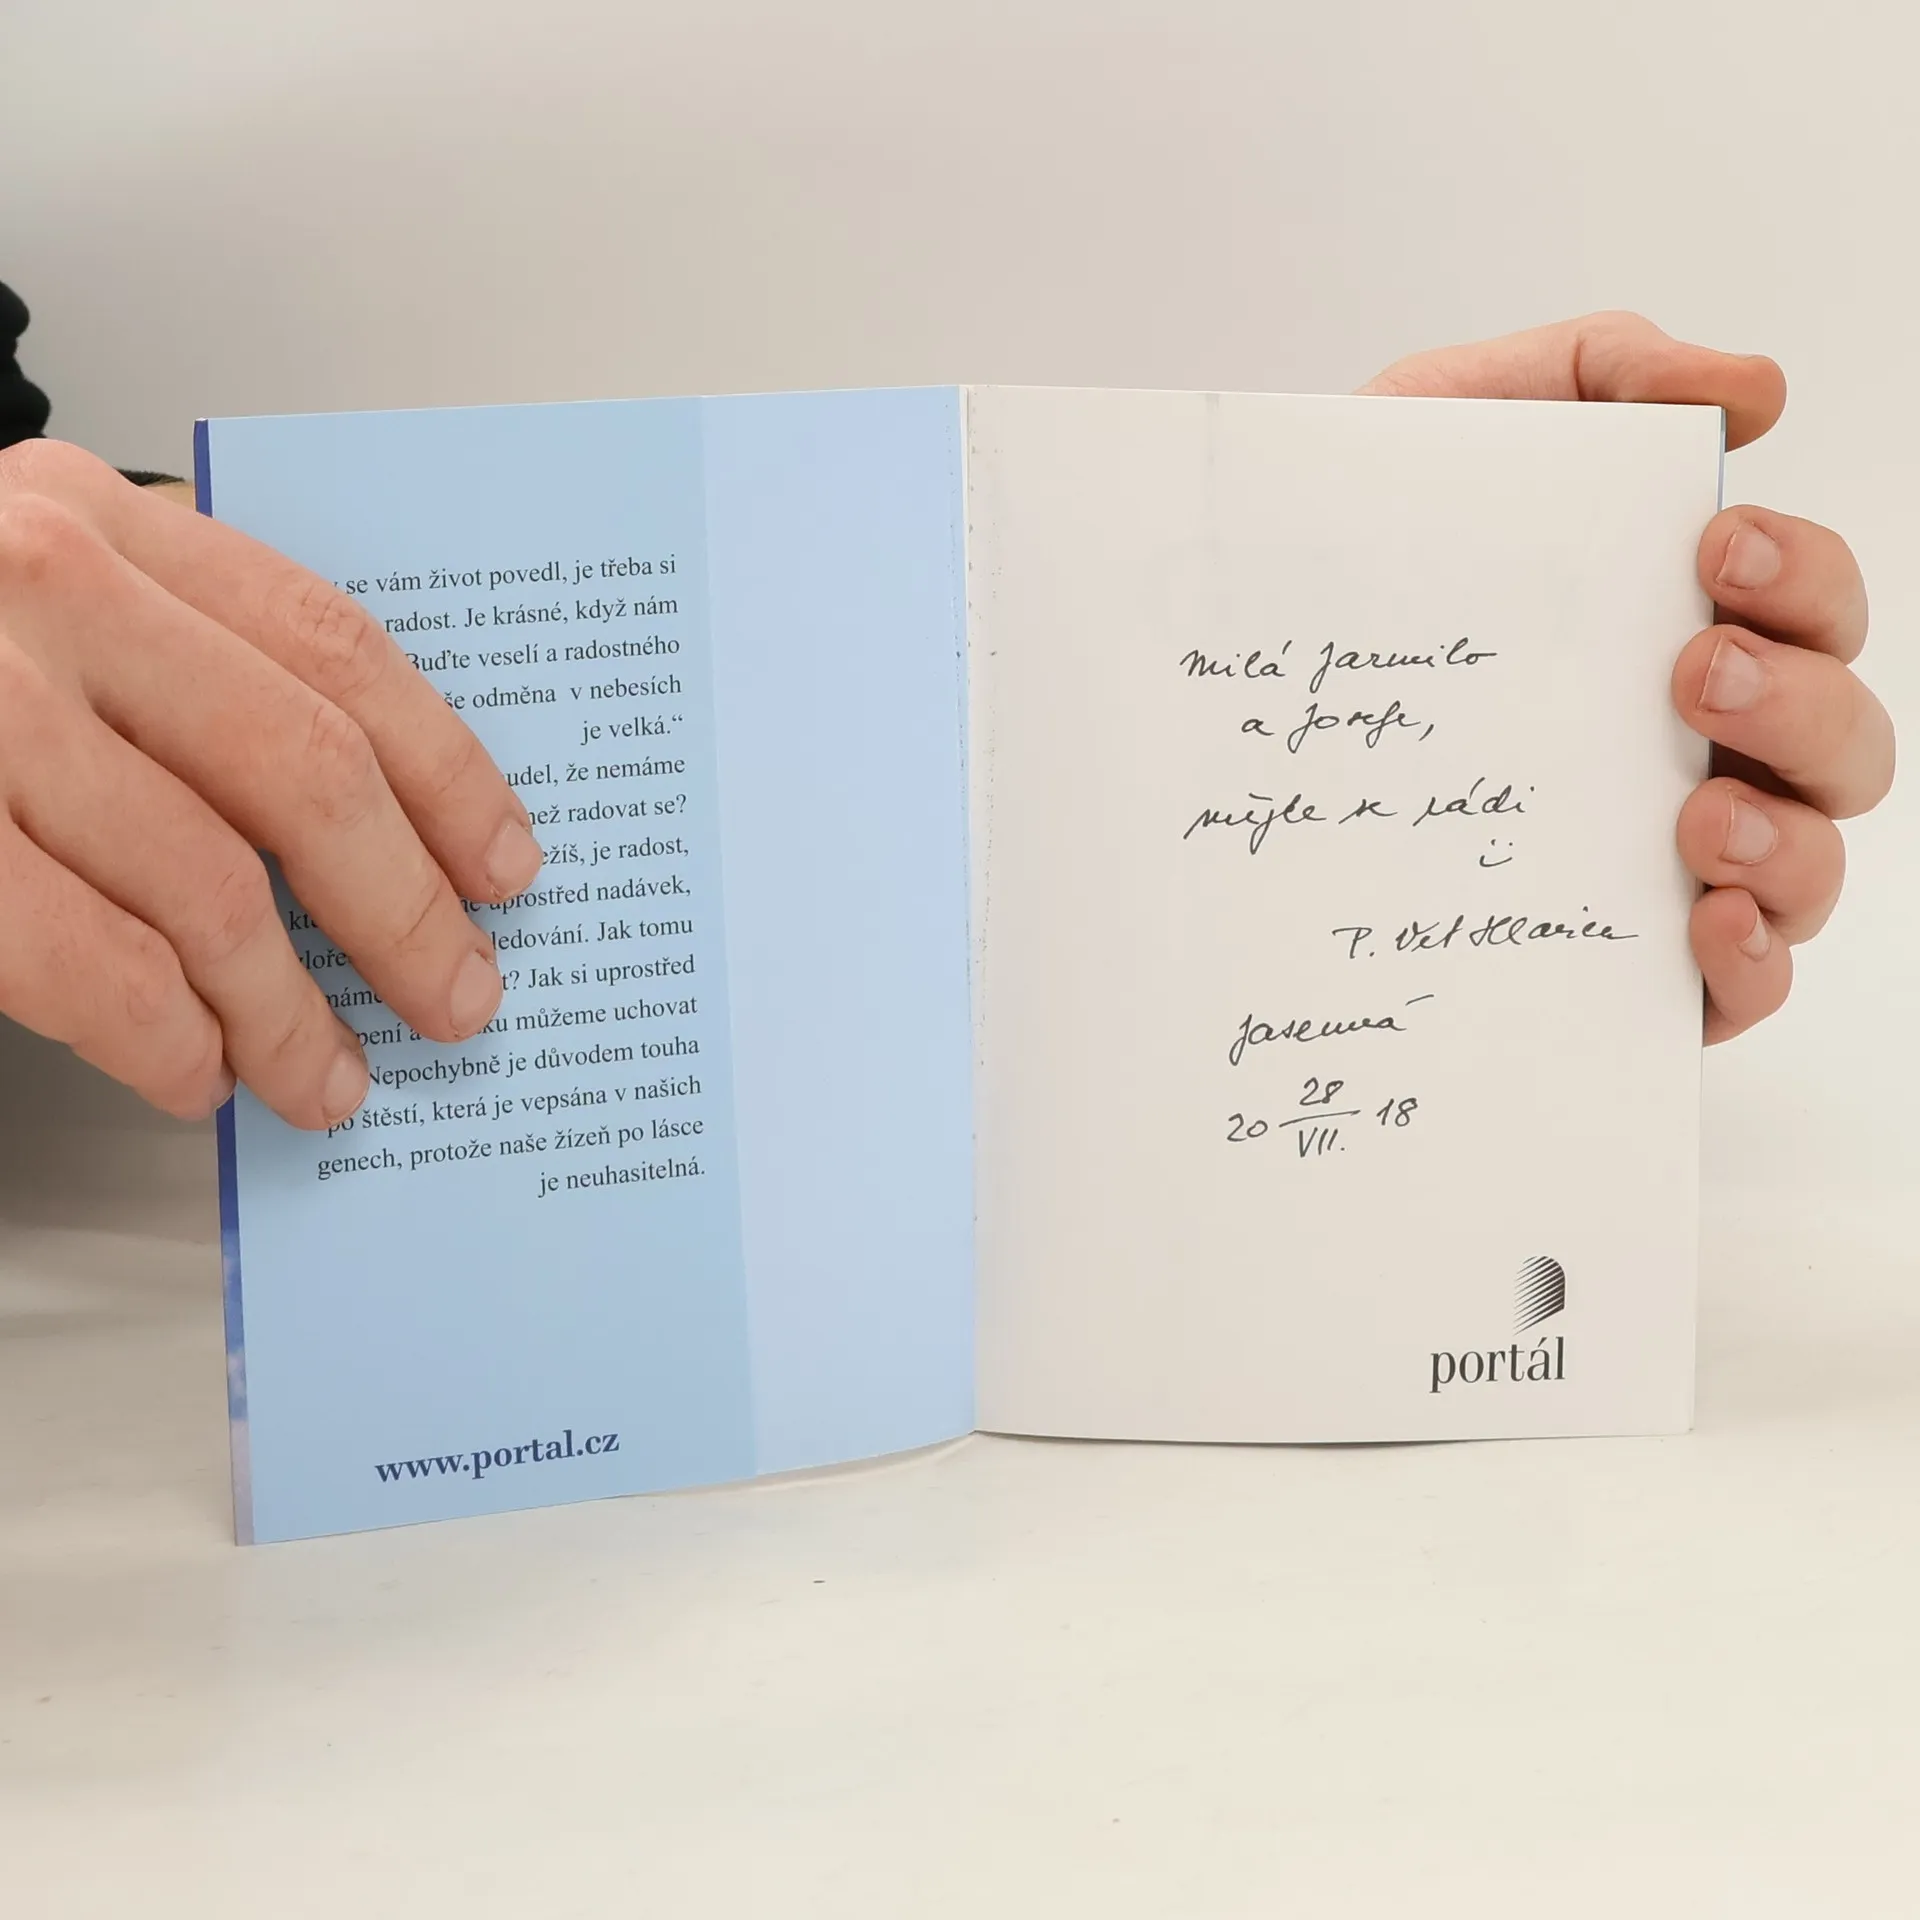 se vám život povedl, je třeba si
radost. Je krásné, když nám
Buďte veselí a radostného
še odměna v nebesích
je velká.“
udel, že nemáme
než radovat se?
ežíš, je radost,
uprostřed nadávek,
ledování. Jak tomu
t? Jak si uprostřed
pení a ku můžeme uchovat
Nepochybně je důvodem touha
po štěstí, která je vepsána v našich
genech, protože naše žízeň po lásce
je neuhasitelná.
www.portal.cz
Milá Jarmilo
a Josefe,
mějte se rádi
P. Vít
Jasenná
20 28/VII. 18
portál